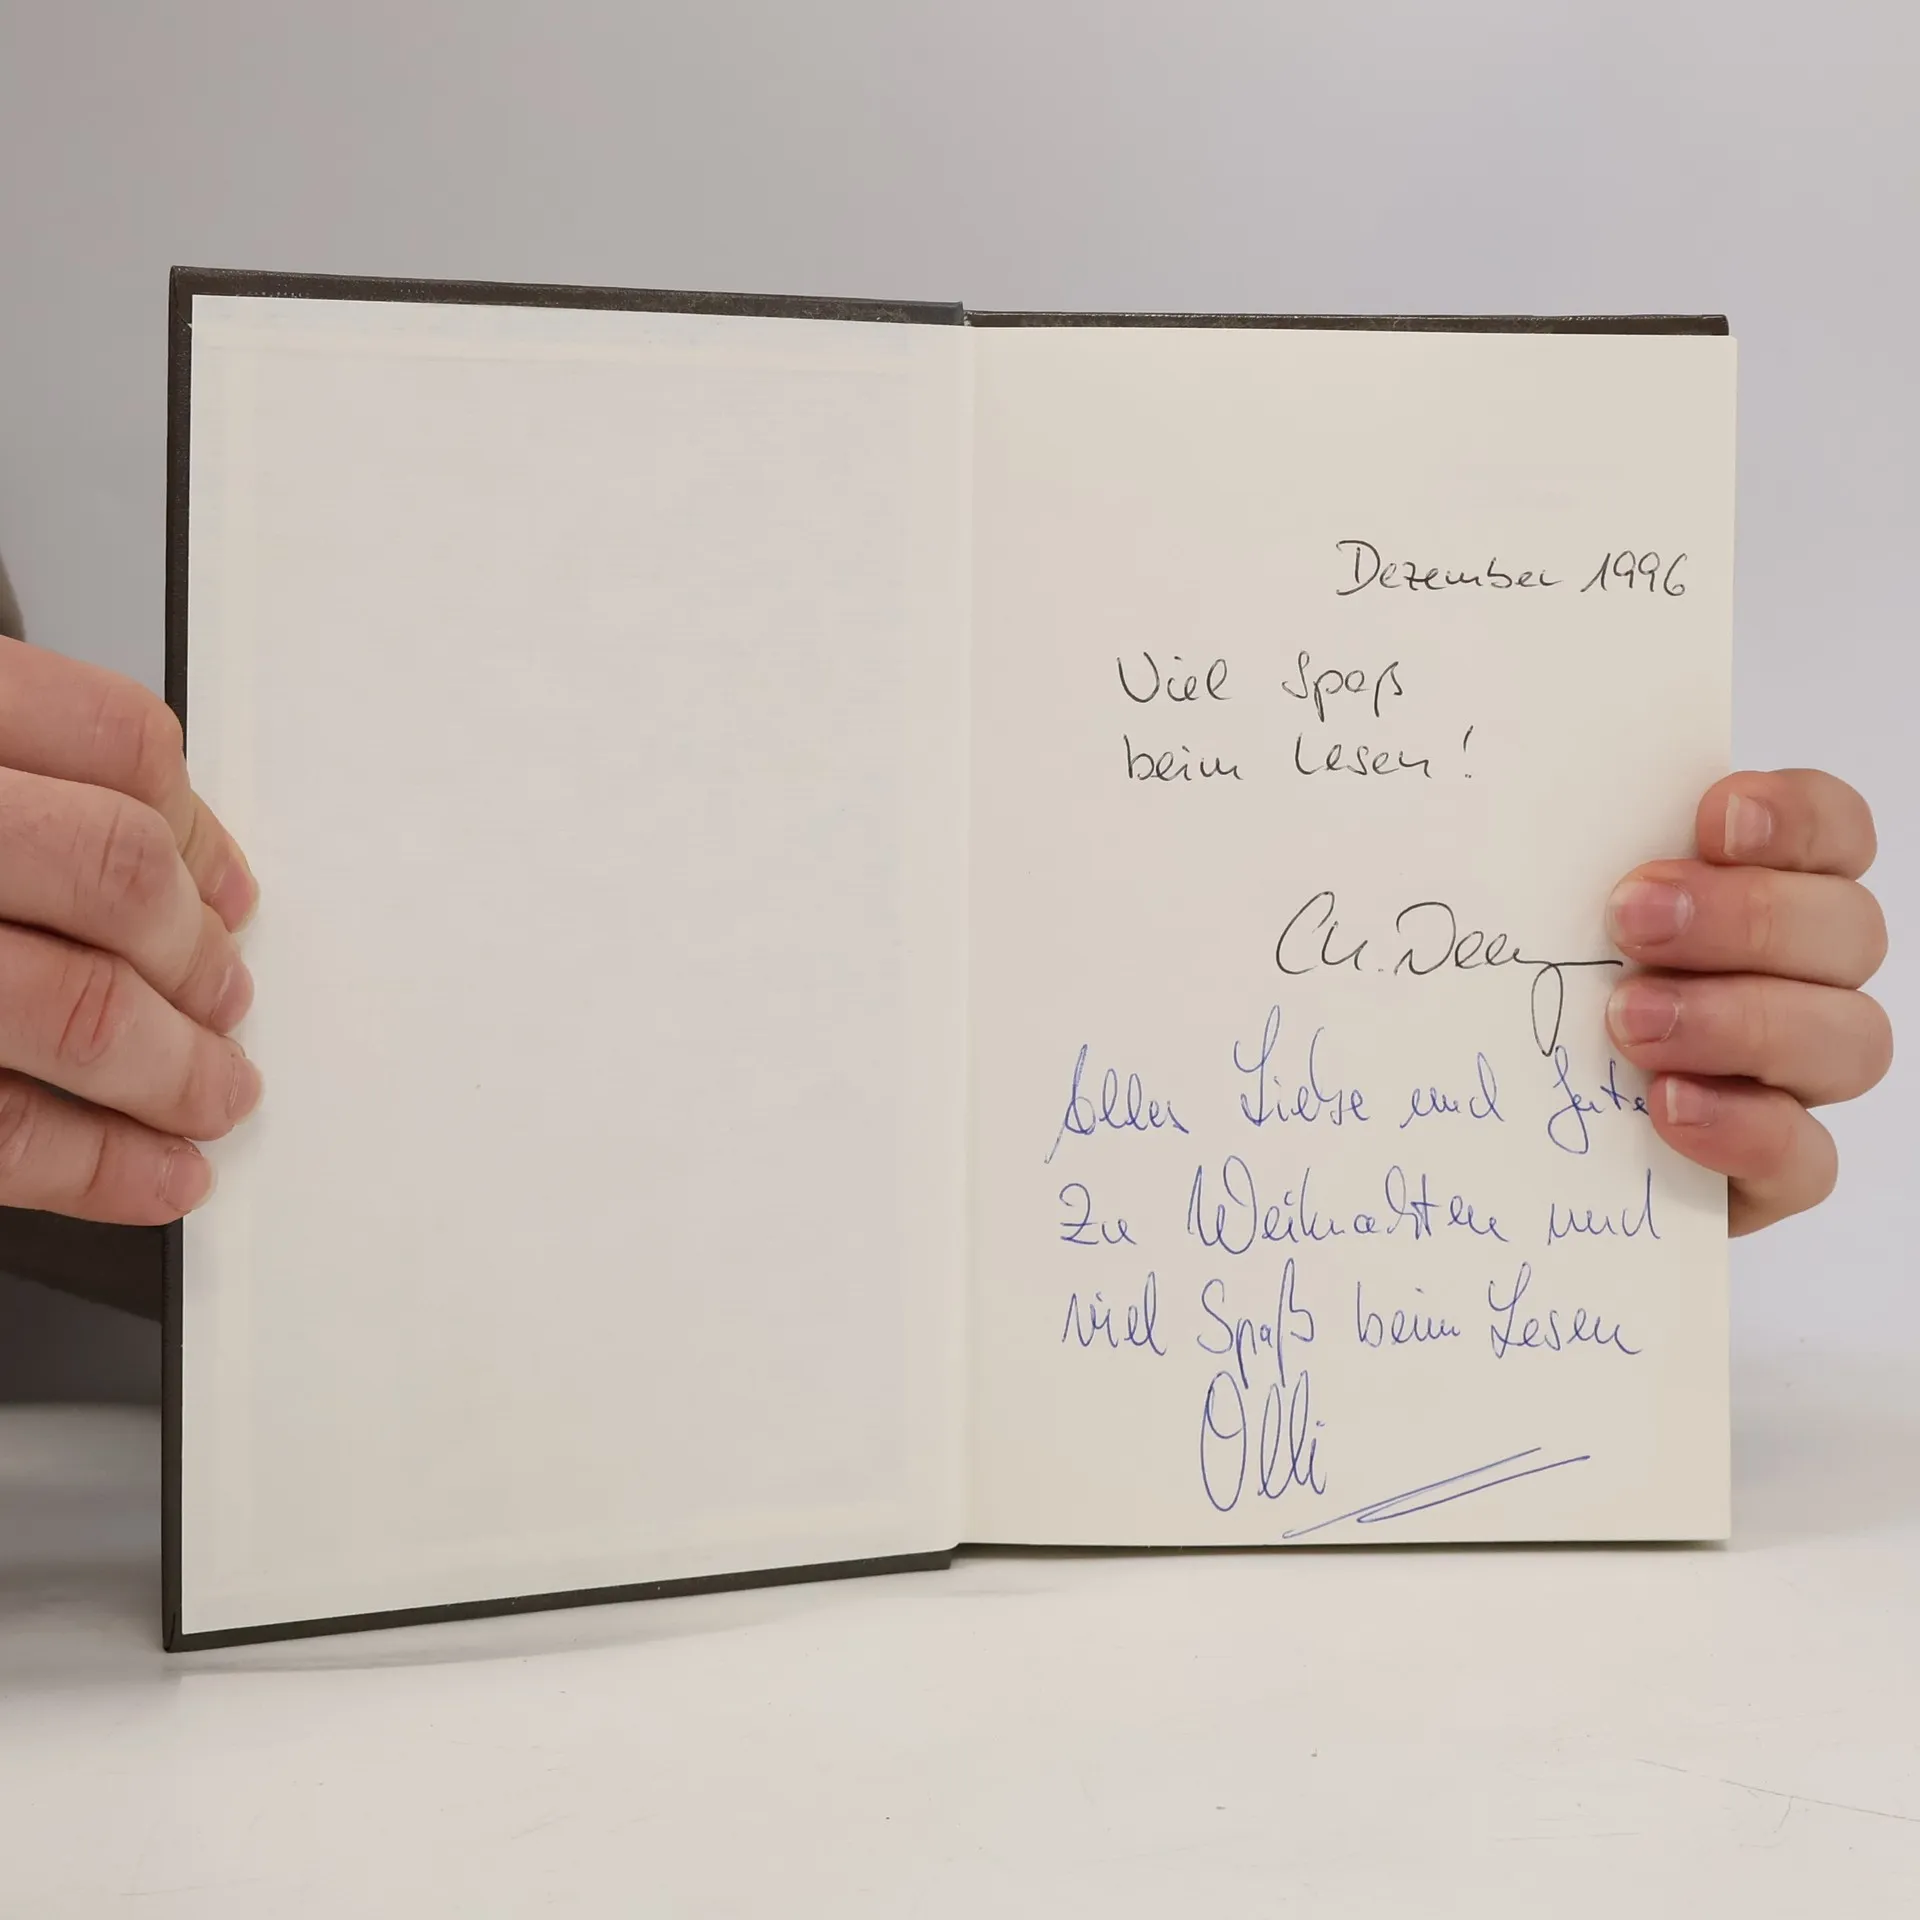 Dezember 1996
Viel Spaß
beim Lesen!
Alles Liebe und Gute
zu Weihnachten und
viel Spaß beim Lesen
Olli